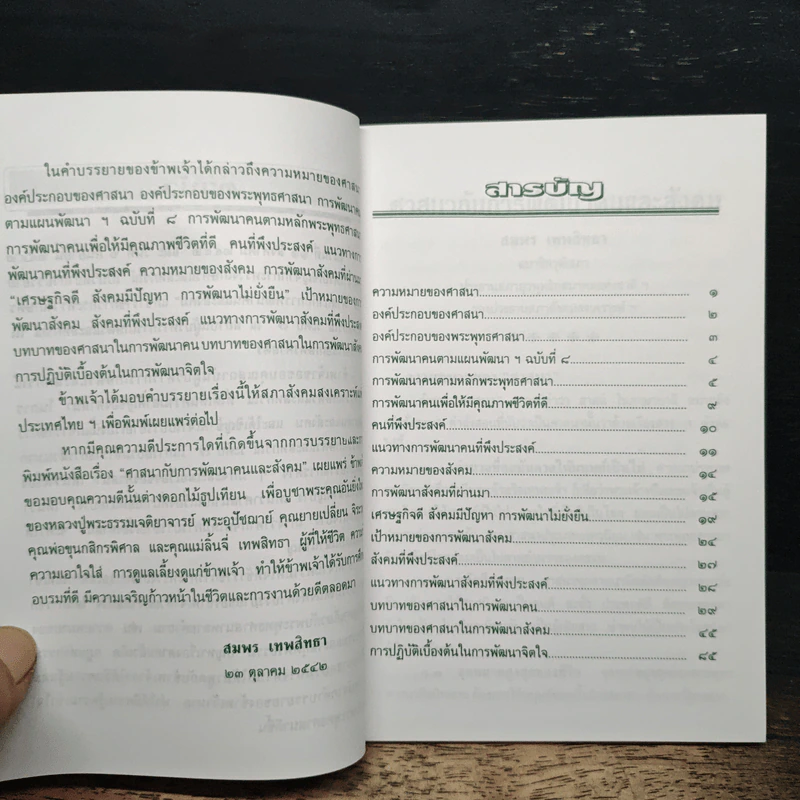 ในคำบรรยายของข้าพเจ้าได้กล่าวถึงความหมายของศาสนา
องค์ประกอบของศาสนา องค์ประกอบของพระพุทธศาสนา การพัฒนาคน
ตามแผนพัฒนา ฯ ฉบับที่ ๘ การพัฒนาคนตามหลักพระพุทธศาสนา
การพัฒนาคนเพื่อให้มีคุณภาพชีวิตที่ดี คนที่พึงประสงค์ แนวทางการ
พัฒนาคนที่พึงประสงค์ ความหมายของสังคม การพัฒนาสังคมที่ผ่านมา
“เศรษฐกิจดี สังคมมีปัญหา การพัฒนาไม่ยั่งยืน” เป้าหมายของการ
พัฒนาสังคม สังคมที่พึงประสงค์ แนวทางการพัฒนาสังคมที่พึงประสงค์
บทบาทของศาสนาในการพัฒนาคน บทบาทของศาสนาในการพัฒนาสังคม
การปฏิบัติเบื้องต้นในการพัฒนาจิตใจ
ข้าพเจ้าได้มอบคำบรรยายเรื่องนี้ให้สภาสังคมสงเคราะห์
ประเทศไทย ฯ เพื่อพิมพ์เผยแพร่ต่อไป
หากมีคุณความดีประการใดที่เกิดขึ้นจากการบรรยายและการ
พิมพ์หนังสือเรื่อง “ศาสนากับการพัฒนาคนและสังคม” เผยแพร่
ขอมอบคุณความดีนั้นต่างดอกไม้ธูปเทียน เพื่อบูชาพระคุณอัน
ของหลวงปู่พระธรรมเจติยาจารย์ พระอุปัชฌาย์ คุณยายเปลี่ยน
คุณพ่อขุนกสิกรพิศาล และคุณแม่ลิ้นจี่ เทพสิทธา ผู้ให้ชีวิต
ความเอาใจใส่ การดูแลเลี้ยงดูแก่ข้าพเจ้า ทำให้ข้าพเจ้าได้รับการ
อบรมที่ดี มีความเจริญก้าวหน้าในชีวิตและการงานด้วยดีตลอดมา
สมพร เทพสิทธา
๒๓ ตุลาคม ๒๕๔๒
สารบัญ
ความหมายของศาสนา ๑
องค์ประกอบของศาสนา ๒
องค์ประกอบของพระพุทธศาสนา ๓
การพัฒนาคนตามแผนพัฒนา ฯ ฉบับที่ ๘ ๔
การพัฒนาคนตามหลักพระพุทธศาสนา ๕
การพัฒนาคนเพื่อให้มีคุณภาพชีวิตที่ดี ๙
คนที่พึงประสงค์ ๑๐
แนวทางการพัฒนาคนที่พึงประสงค์ ๑๑
ความหมายของสังคม ๑๔
การพัฒนาสังคมที่ผ่านมา ๑๕
เศรษฐกิจดี สังคมมีปัญหา การพัฒนาไม่ยั่งยืน ๑๙
เป้าหมายของการพัฒนาสังคม ๒๔
สังคมที่พึงประสงค์ ๒๗
แนวทางการพัฒนาสังคมที่พึงประสงค์ ๒๘
บทบาทของศาสนาในการพัฒนาคน ๒๙
บทบาทของศาสนาในการพัฒนาสังคม ๔๕
การปฏิบัติเบื้องต้นในการพัฒนาจิตใจ ๘๕